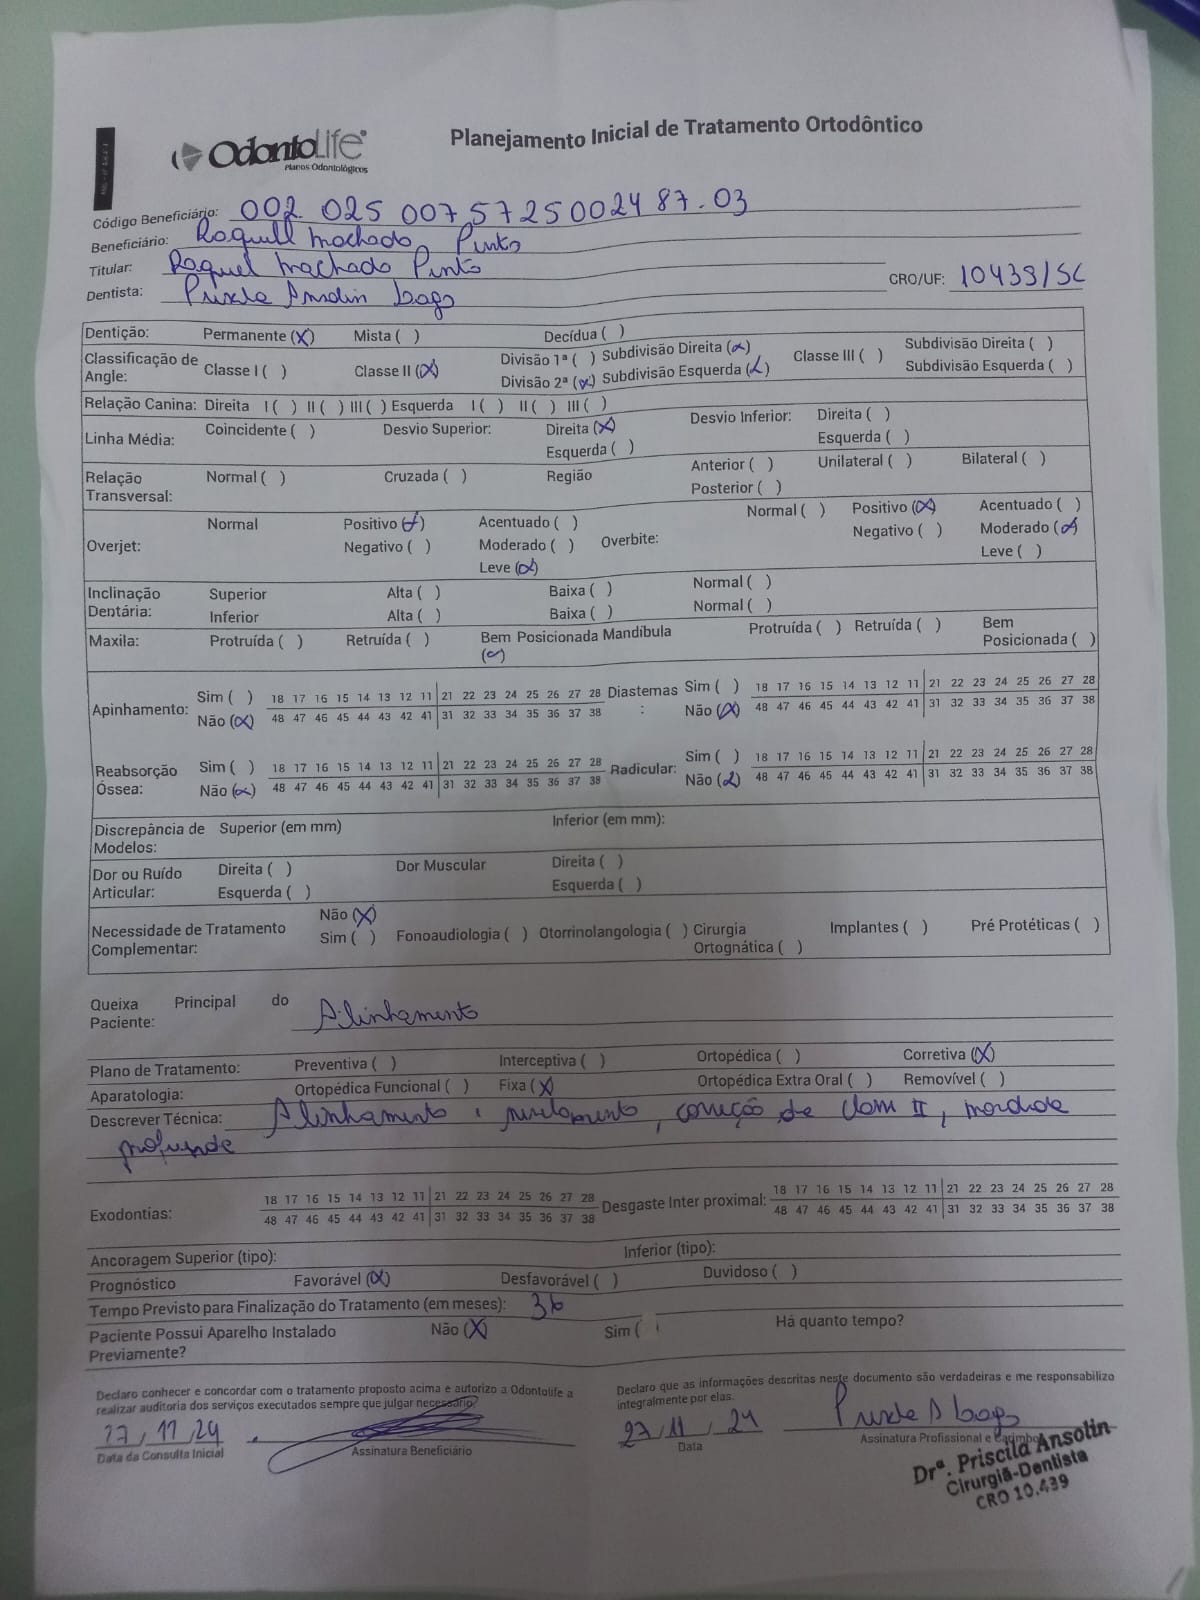 OdontoLife
Planos Odontológicos
Planejamento Inicial de Tratamento Ortodôntico
Código Beneficiário: 002 025 00757250024 87.03
Beneficiário: Raquell Machado Pinto
Titular: Raquel Machado Pinto
Dentista: CRO/UF: 10439/SC
Dentição: Permanente (X) Mista ( ) Decídua ( )
Classificação de Angle: Classe I ( ) Classe II (X) Divisão 1ª ( ) Subdivisão Direita (X) Classe III ( ) Subdivisão Direita ( )
Divisão 2ª (X) Subdivisão Esquerda (X) Subdivisão Esquerda ( )
Relação Canina: Direita I ( ) II ( ) III ( ) Esquerda I ( ) II ( ) III ( )
Linha Média: Coincidente ( ) Desvio Superior: Direita (X) Desvio Inferior: Direita ( )
Esquerda ( ) Esquerda ( )
Relação Transversal: Normal ( ) Cruzada ( ) Região Anterior ( ) Unilateral ( ) Bilateral ( )
Posterior ( )
Overjet: Normal Positivo (X) Acentuado ( ) Overbite: Normal ( ) Positivo (X) Acentuado ( )
Negativo ( ) Moderado ( ) Negativo ( ) Moderado (X)
Leve (X) Leve ( )
Inclinação Dentária: Superior Alta ( ) Baixa ( ) Normal ( )
Inferior Alta ( ) Baixa ( ) Normal ( )
Maxila: Protruída ( ) Retruída ( ) Bem Posicionada (X) Mandíbula Protruída ( ) Retruída ( ) Bem Posicionada ( )
Apinhamento: Sim ( ) 18 17 16 15 14 13 12 11 21 22 23 24 25 26 27 28 Diastemas: Sim ( ) 18 17 16 15 14 13 12 11 21 22 23 24 25 26 27 28
Não (X) 48 47 46 45 44 43 42 41 31 32 33 34 35 36 37 38 Não (X) 48 47 46 45 44 43 42 41 31 32 33 34 35 36 37 38
Reabsorção Óssea: Sim ( ) 18 17 16 15 14 13 12 11 21 22 23 24 25 26 27 28 Radicular: Sim ( ) 18 17 16 15 14 13 12 11 21 22 23 24 25 26 27 28
Não (X) 48 47 46 45 44 43 42 41 31 32 33 34 35 36 37 38 Não (X) 48 47 46 45 44 43 42 41 31 32 33 34 35 36 37 38
Discrepância de Modelos: Superior (em mm) Inferior (em mm):
Dor ou Ruído Articular: Direita ( ) Dor Muscular Direita ( )
Esquerda ( ) Esquerda ( )
Necessidade de Tratamento Complementar: Não (X)
Sim ( ) Fonoaudiologia ( ) Otorrinolangologia ( ) Cirurgia Ortognática ( ) Implantes ( ) Pré Protéticas ( )
Queixa Principal do Paciente: Alinhamento
Plano de Tratamento: Preventiva ( ) Interceptiva ( ) Ortopédica ( ) Corretiva (X)
Aparatologia: Ortopédica Funcional ( ) Fixa (X) Ortopédica Extra Oral ( ) Removível ( )
Descrever Técnica: Alinhamento, nivelamento, correção de Classe II, mordida
profunda
Exodontias: 18 17 16 15 14 13 12 11 21 22 23 24 25 26 27 28 Desgaste Inter proximal: 18 17 16 15 14 13 12 11 21 22 23 24 25 26 27 28
48 47 46 45 44 43 42 41 31 32 33 34 35 36 37 38 48 47 46 45 44 43 42 41 31 32 33 34 35 36 37 38
Ancoragem Superior (tipo): Inferior (tipo):
Prognóstico Favorável (X) Desfavorável ( ) Duvidoso ( )
Tempo Previsto para Finalização do Tratamento (em meses): 36
Paciente Possui Aparelho Instalado Previamente? Não (X) Sim ( Há quanto tempo?
Declaro conhecer e concordar com o tratamento proposto acima e autorizo a Odontolife a
realizar auditoria dos serviços executados sempre que julgar necessário.
27/11/24
Data da Consulta Inicial Assinatura Beneficiário
Declaro que as informações descritas neste documento são verdadeiras e me responsabilizo
integralmente por elas.
27/11/24
Data Assinatura Profissional e Carimbo
Drª. Priscila Ansolin
Cirurgiã-Dentista
CRO 10.439